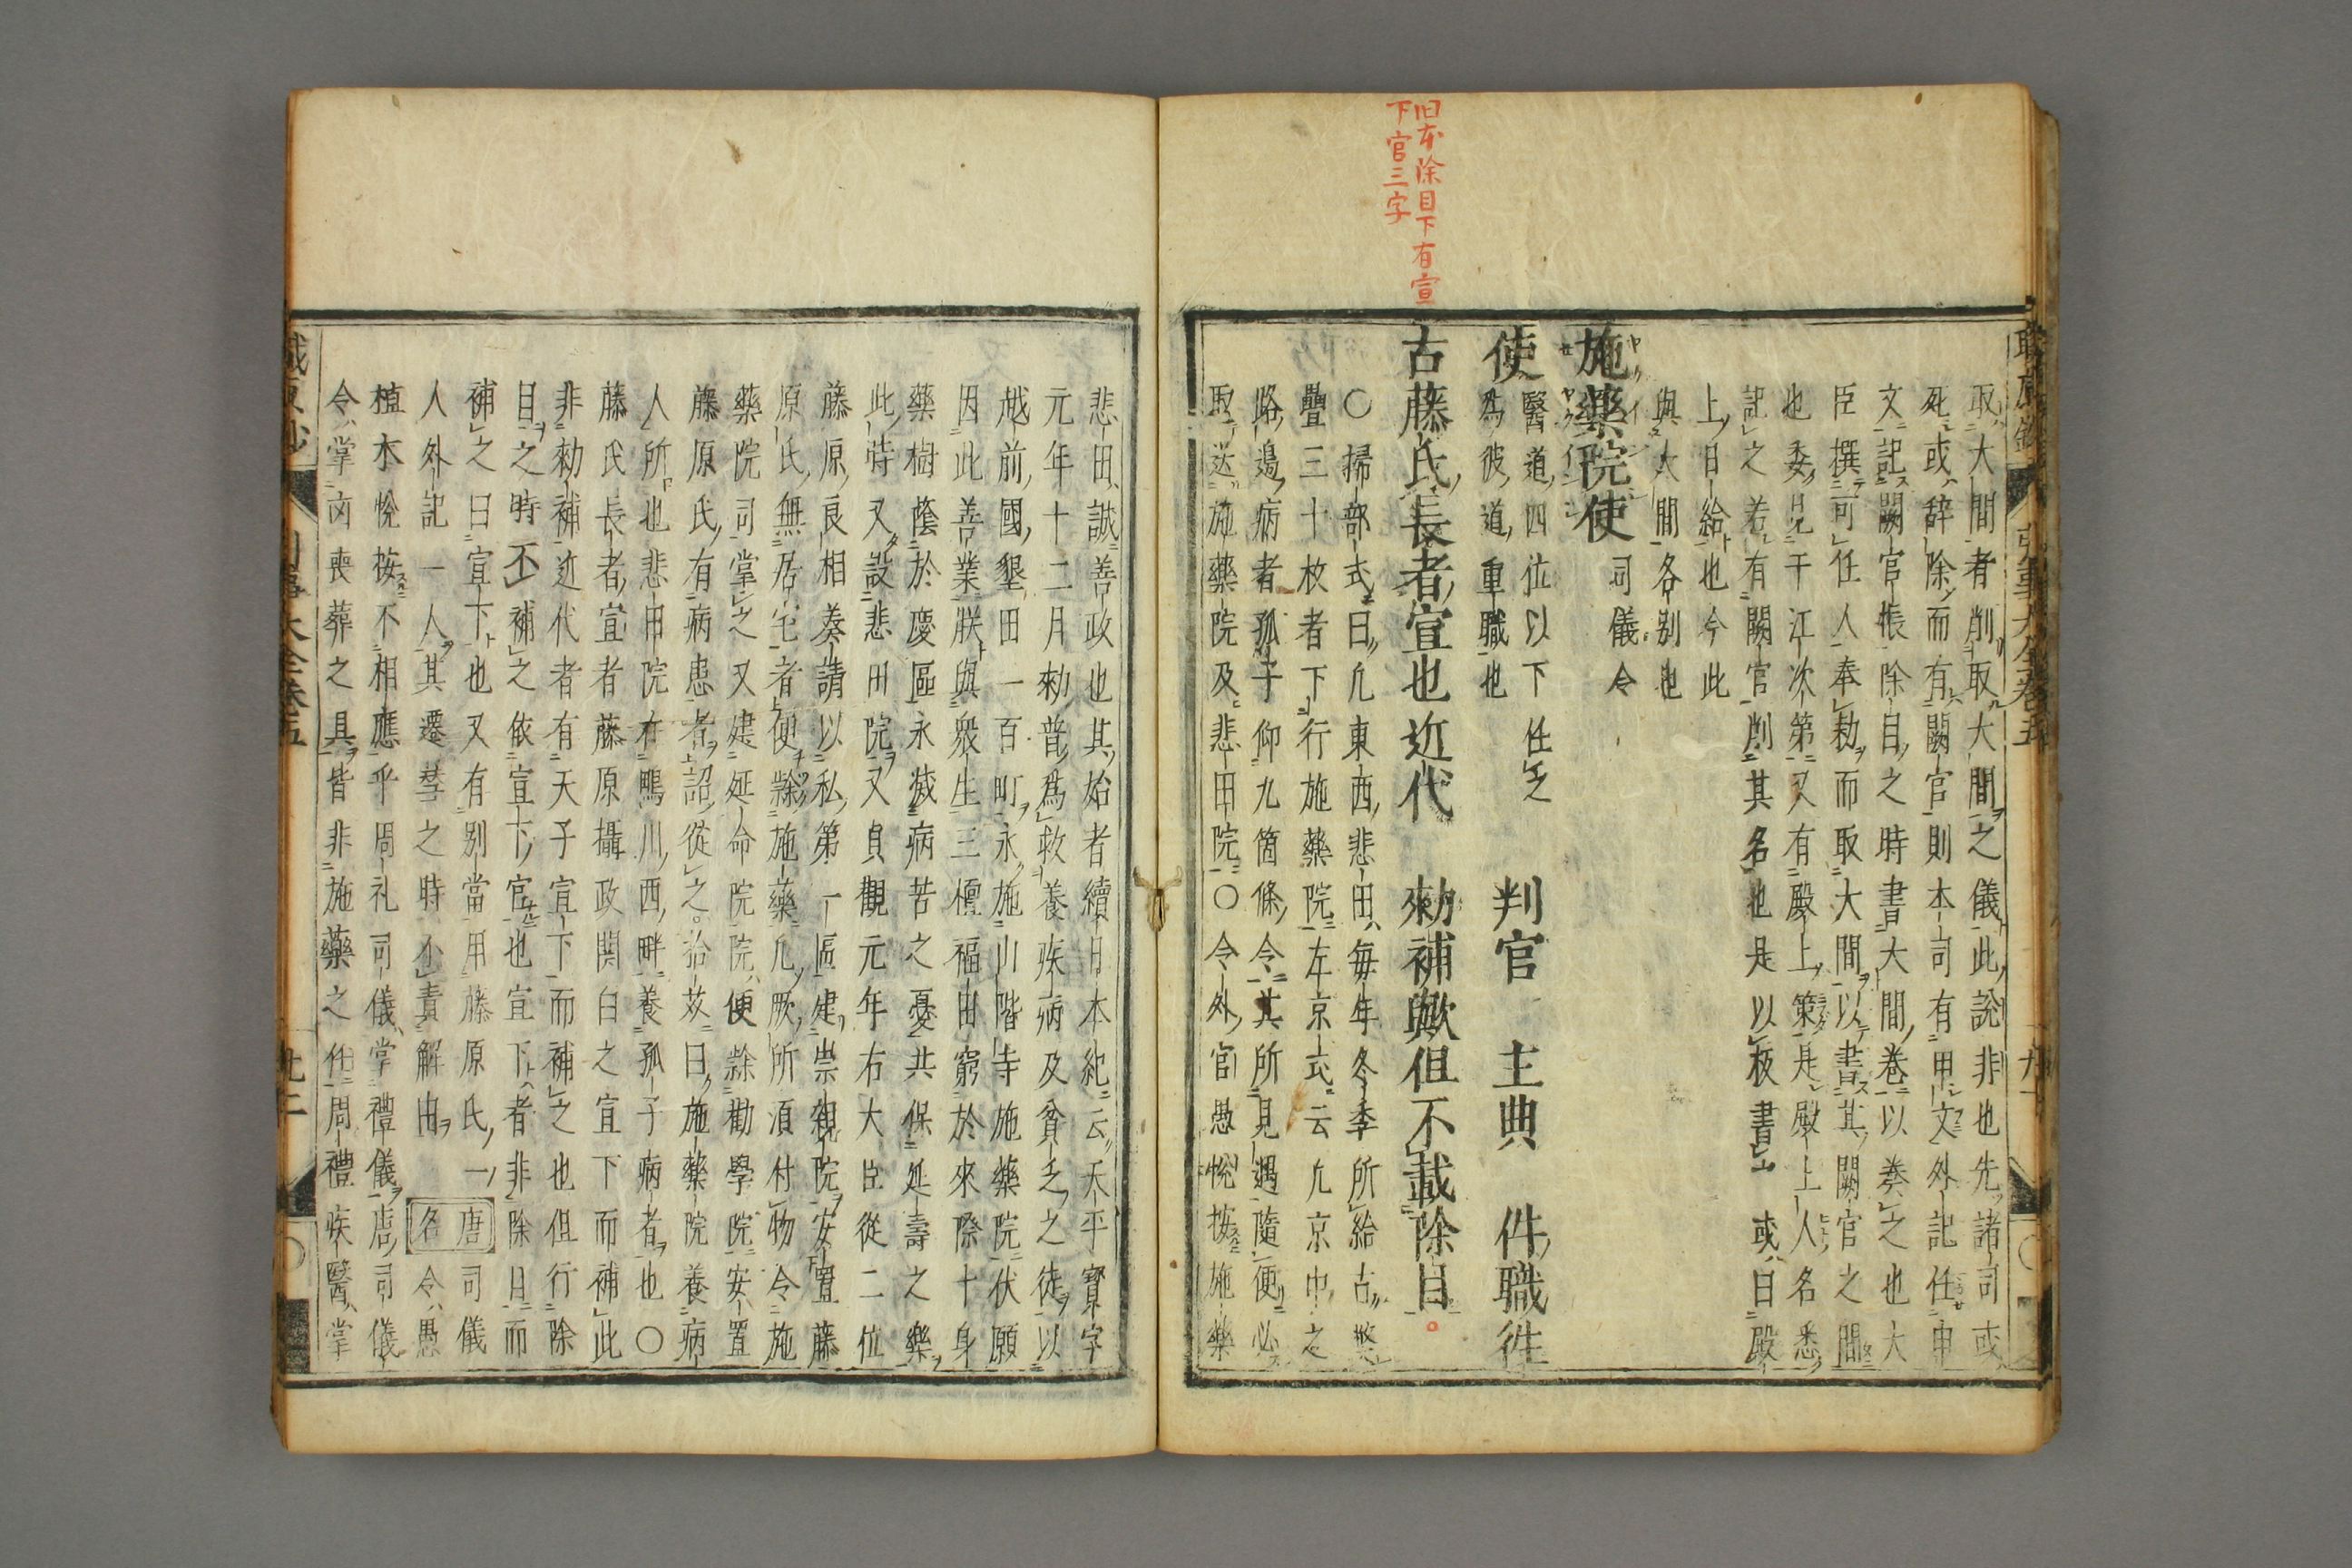 旧本除目下有宣
下官三字
取大間者削取大間之儀此說非也先諸司或
死或辞除而有闕官則本司有申文外記任申
文記闕官帳除目之時書大間卷以奏之也大
臣撰可任人奉勅而取大間以書其闕官之間
也委見于江次第又有殿上策是殿上人名悉
記之若有闕官削其名也是以板書山或曰殿
上日給也今此
與大間各别也
施藥院使
司儀令
使
醫道四位以下任之
為彼道重職也
判官 主典 件職徃
古藤氏長者宣也近代 勅補歟但不載除目
○掃部式曰凢東西悲田每年冬季所給古弊
疊三十枚者下行施藥院左京式云凢京中之
路邉病者孤子仰九箇條令其所見遇隨便必
取送施藥院及悲田院○令外官愚按施藥
悲田誠善政也其始者續日本紀云天平寳字
元年十二月勅普為救養疾病及貧乏之徒以
越前國墾田一百町永施山階寺施藥院伏願
因此善業朕與衆生三檀福田窮於來際十身
藥樹蔭於慶區永滅病苦之憂共保延壽之樂
此時又設悲田院又貞觀元年右大臣從二位
藤原良相奏請以私第一區建崇親院安置藤
原氏無居宅者便隷施藥凢厥所湏付物令施
藥院司掌之又建延命院院便隷勸學院安置
藤原氏有病患者詔從之。拾芥曰施藥院養病
人所也悲田院在鴨川西畔養孤子病者也○
藤氏長者宣者藤原攝政関白之宣下而補此
非勅補近代者有天子宣下而補之也但行除
目之時不補之依宣下官也宣下者非除目而
補之曰宣下也又有别當用藤原氏一
人外記一人其遷替之時不責解由
唐名
司儀
令愚
植木悅按不相應乎周礼司儀掌禮儀唐司儀
令掌凶喪葬之具皆非施藥之任周禮疾醫掌